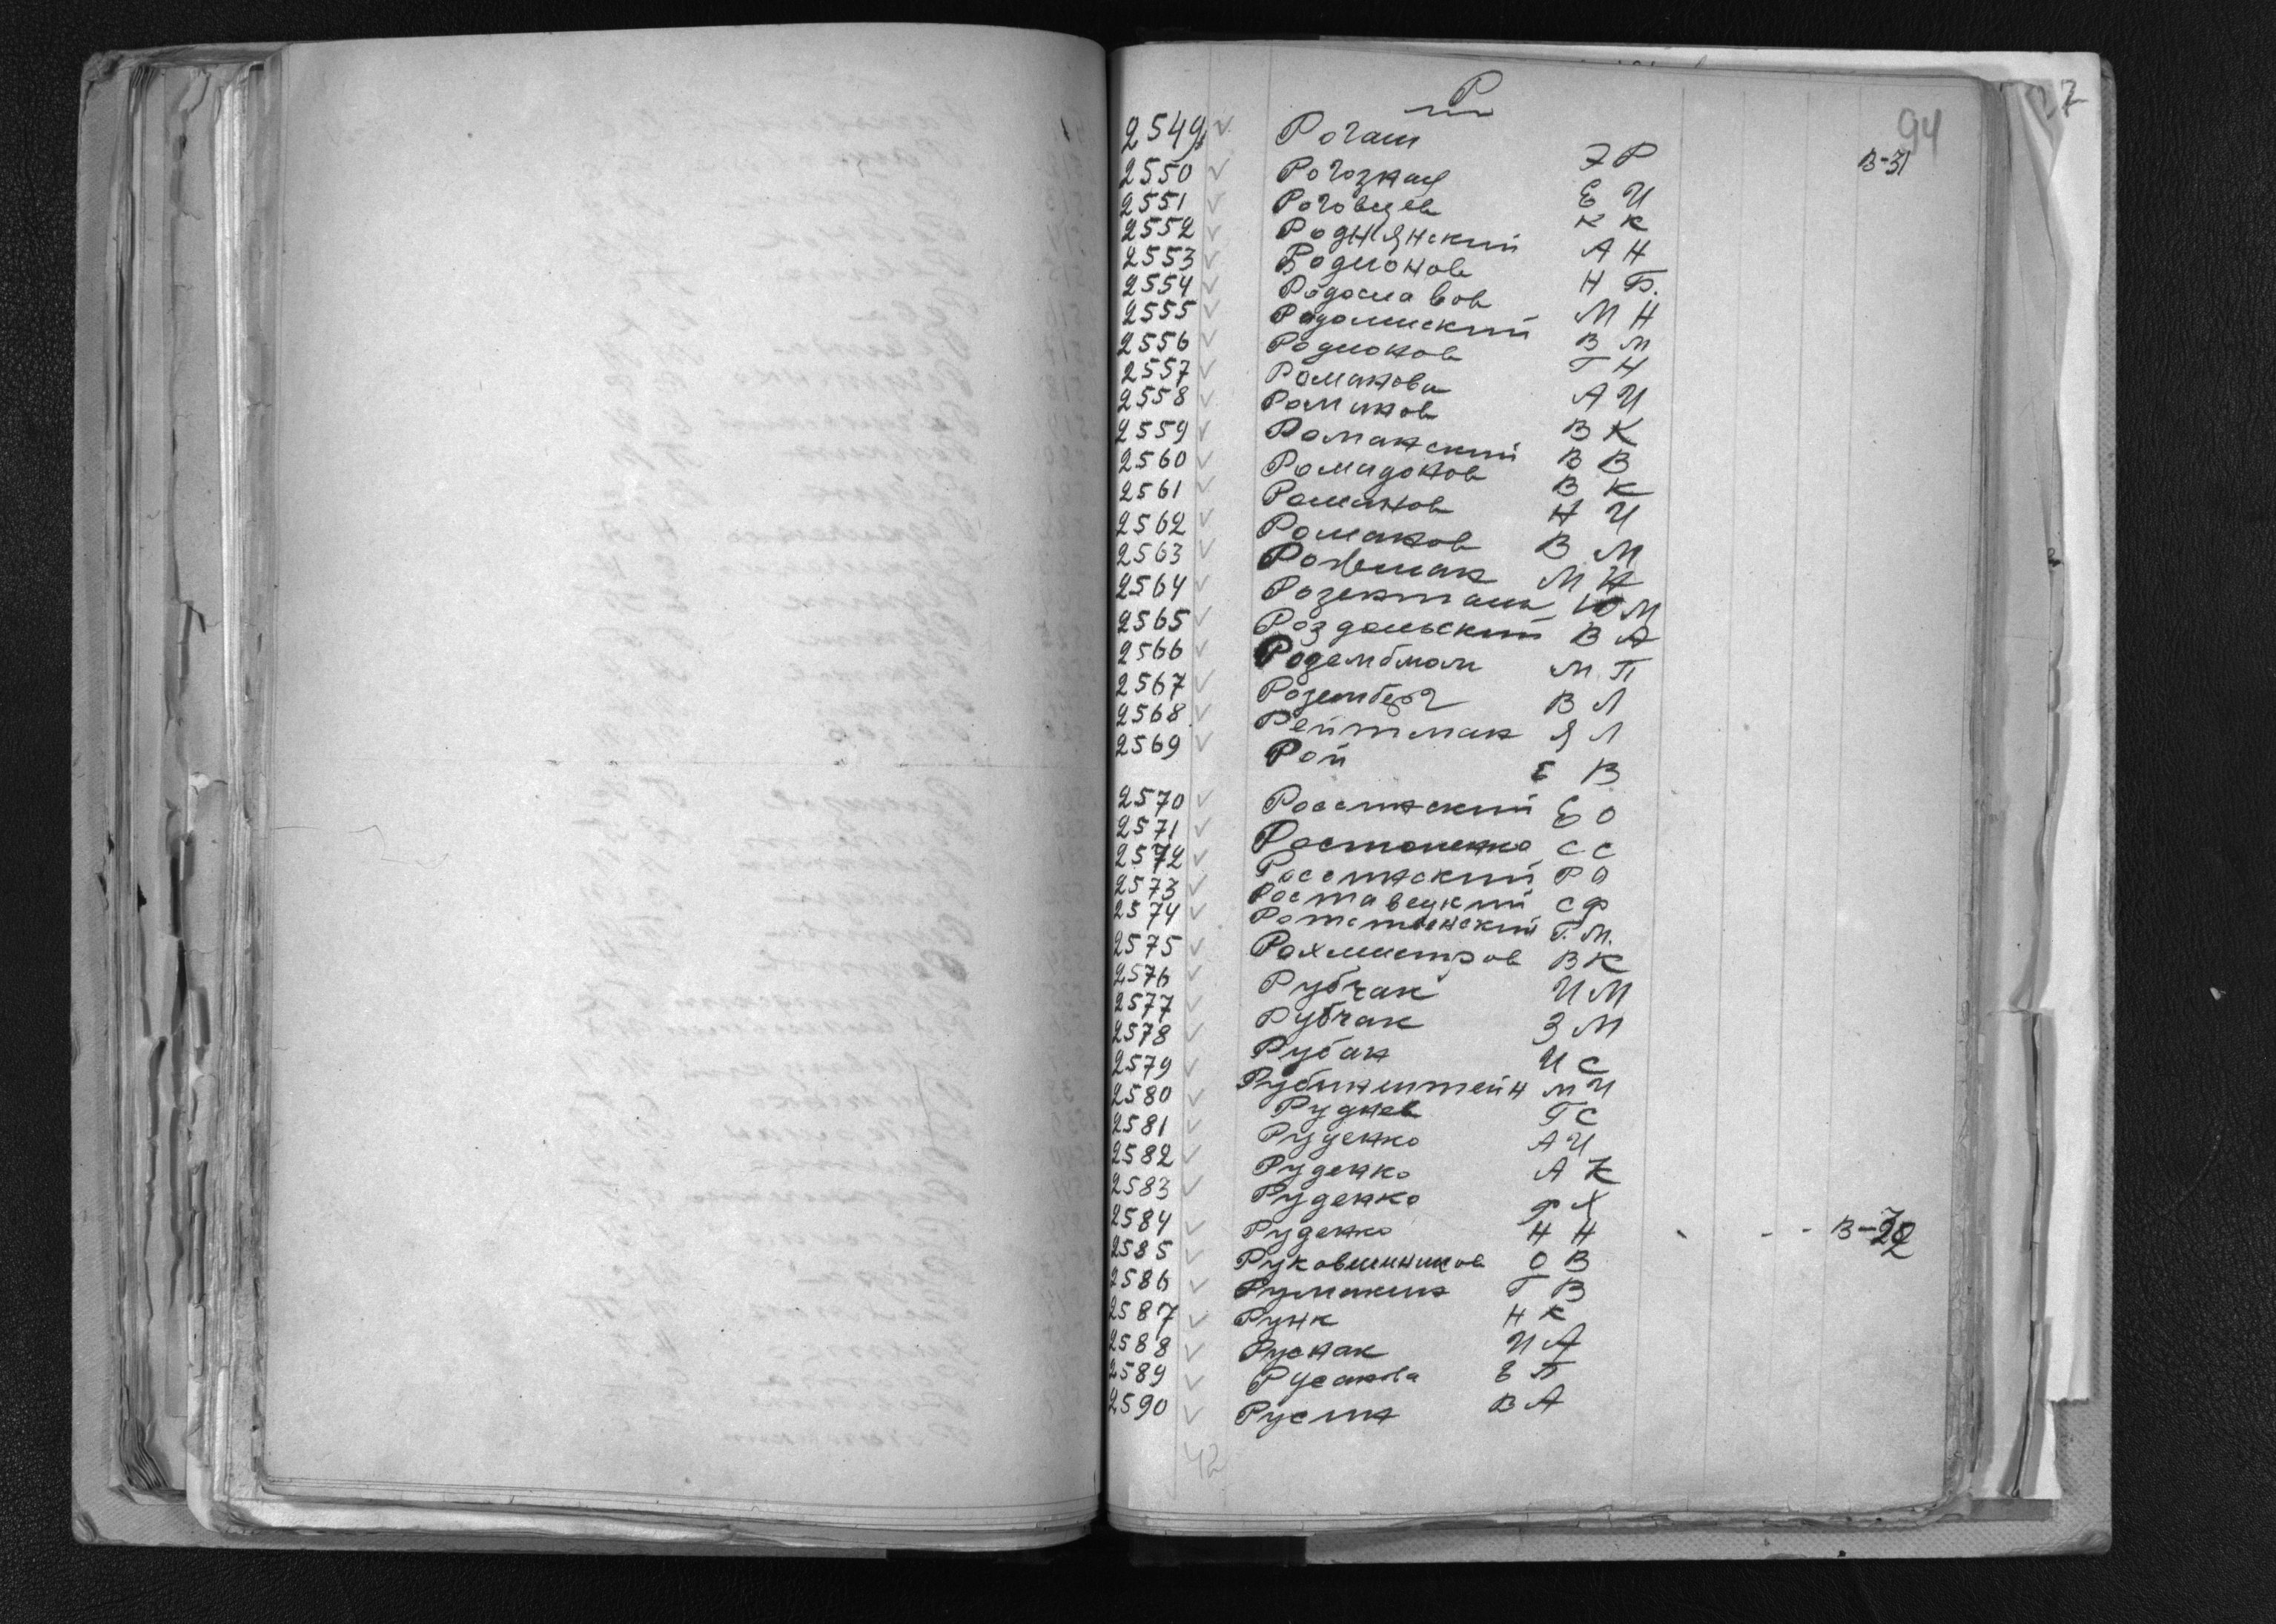 Р
94
2549 Рогаш ЭР В-31
2550 Рогозная Е И
2551 Роговцев К К
2552 Роднянский А Н
2553 Родионов Н Б.
2554 Родославов М Н
2555 Родолиский В М
2556 Родионов Г Н
2557 Романова А И
2558 Романов В К
2559 Романский В В
2560 Ромаданов В К
2561 Романов Н И
2562 Романов В М
2563 М Н
2564 Ю М
2565 Роздольский В А
2566 М П
2567 Розенберг В Л
2568 Рейтман Я Л
2569 Рой Е В
2570 Россинский Е О
2571 Ростоненко С С
2572 Россинский Р О
2573 Роставецкий С Ф
2574 Г. М.
2575 Рохмистров В К
2576 Рубчак И М
2577 Рубчак З М
2578 Рубан И С
2579 Рубинштейн М И
2580 Руднев Г С
2581 Руденко А И
2582 Руденко А К
2583 Руденко Ф Х
2584 Руденко Н Н
2585 Руковишников О В
2586 Румакин Г В
2587 Рунк Н К
2588 Руснак И А
2589 Русанова Е П
2590 Русин В А
42